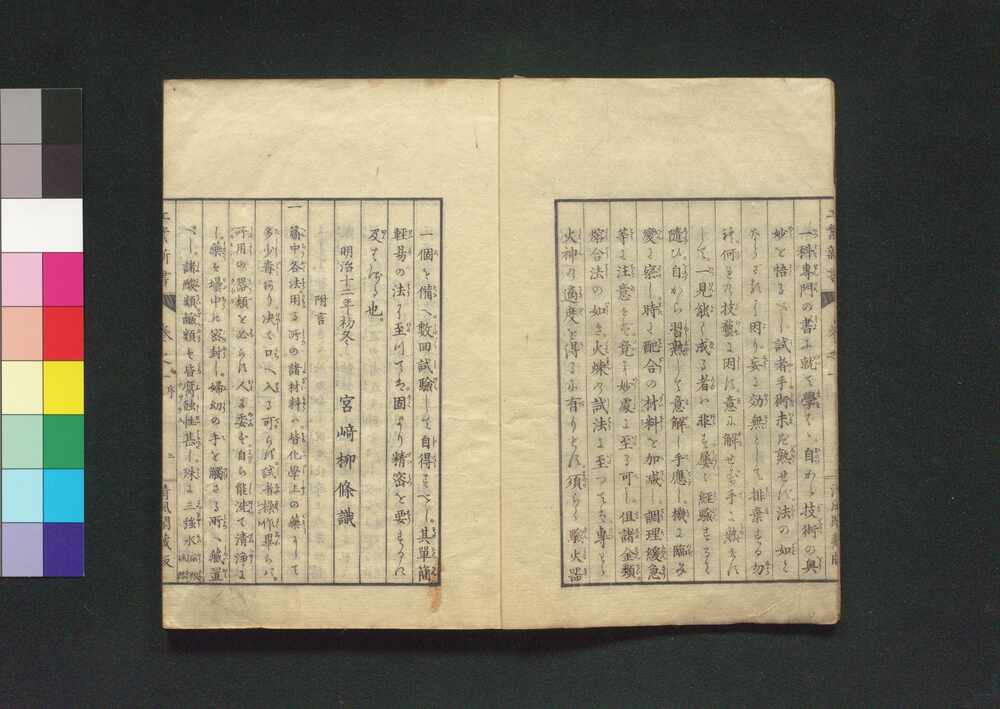 一科専門の書に就て學び、自から技術の奥
妙を悟るべし試者手術未だ熟せず法の如く
ならざるに困り妄に効無しとして排棄する勿
れ何れの技藝に困らず意に解せざれば手に熟せず
して一見能く成る者に非ず屢々經驗するに
隨ひ自から習熟して意解し手應じ機に臨み
變を察し時に配合の材料を加减し調理緩急
等に注意せば竟に妙處に至る可し但諸金類
熔合法の如き火煉の試法に至つては專ら
火神の適度を得るに有りとす須らく聚火器
一個を備へ數回試驗して自得すべし其單簡
輕易の法に至りては固より精密を要するに
及ばざる也
明治十二年初冬 宮﨑柳條識
附言
一 篇中各法用る所の諸材料は皆化學上の藥にして
多少毒あり决て口へ入る可らず試者操作畢らば
所用の器類を必らず人に委せず自ら能洗て清淨に
し藥は壜中に密封し婦幼の手を觸ざる所へ藏置
べし諸酸類鹹類は皆腐蝕性甚し殊に三強水
工業新書 卷之一 序 清風閣藏版